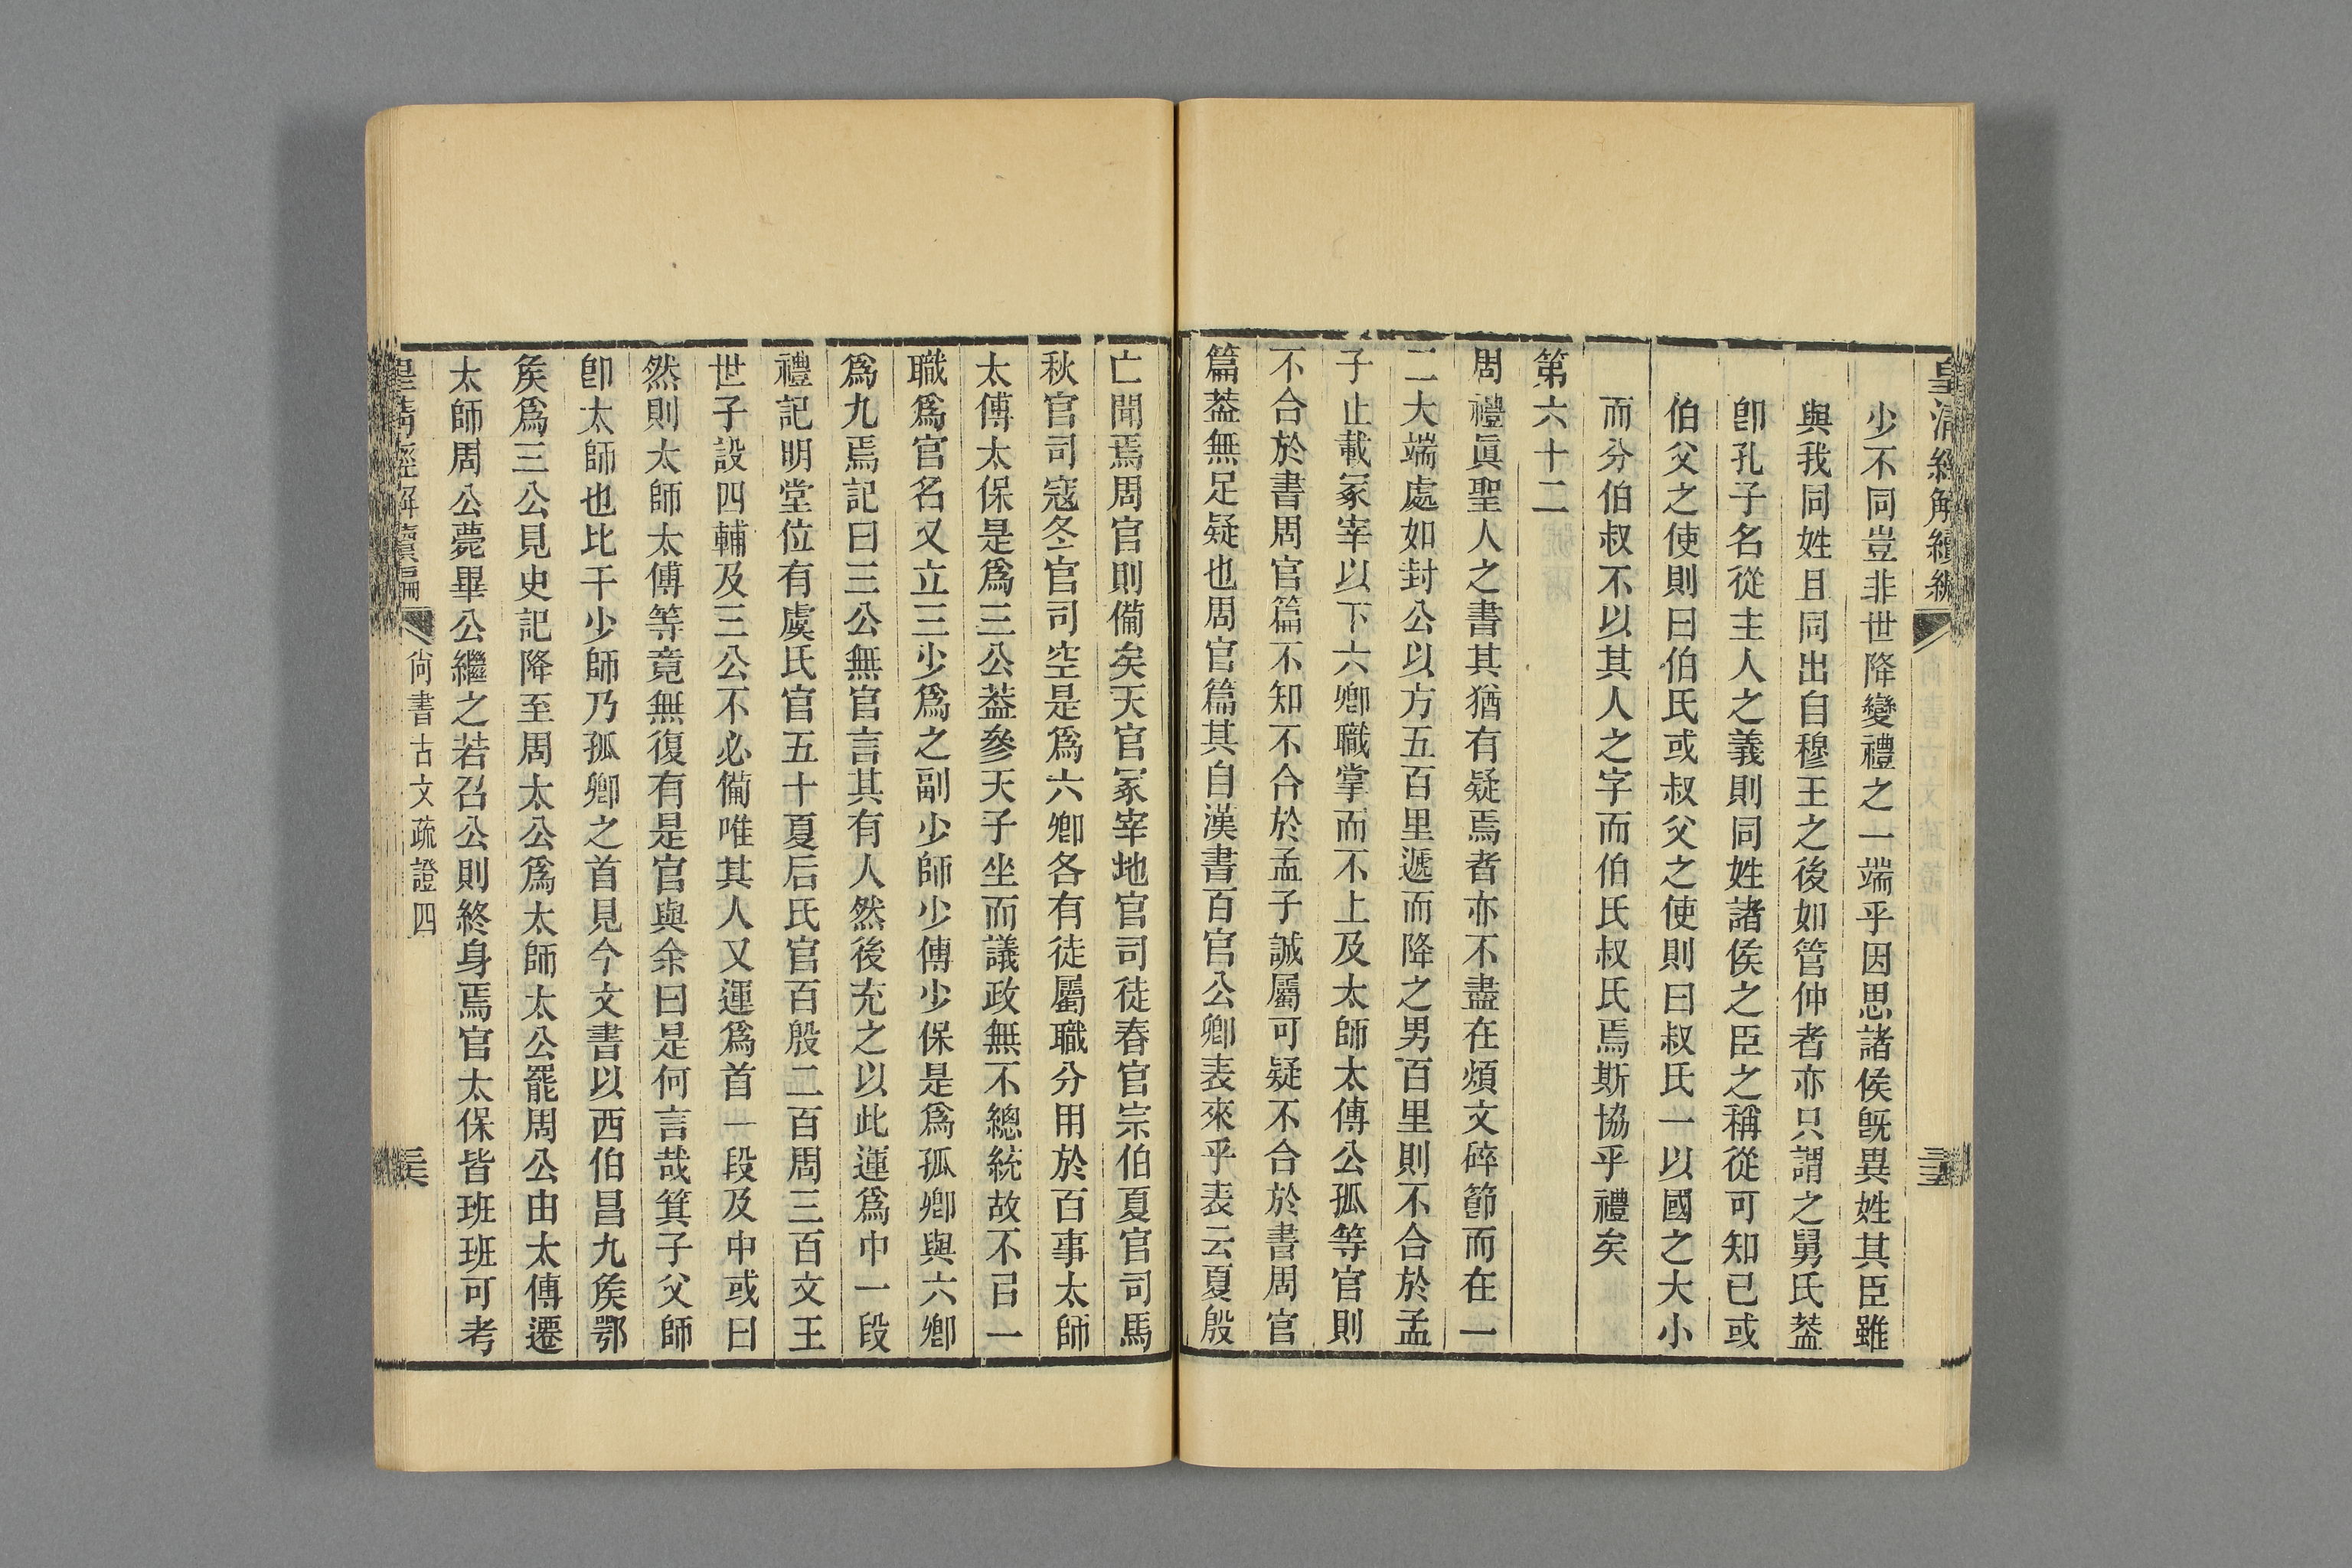 皇清經解續編
少不同豈非世降變禮之一端乎因思諸侯旣異姓其臣雖
與我同姓且同出自穆王之後如管仲者亦只謂之舅氏葢
卽孔子名從主人之義則同姓諸侯之臣之稱從可知已或
伯父之使則曰伯氏或叔父之使則曰叔氏一以國之大小
而分伯叔不以其人之字而伯氏叔氏焉斯協乎禮矣
第六十二
周禮眞聖人之書其猶有疑焉者亦不盡在煩文碎節而在一
二大端處如封公以方五百里遞而降之男百里則不合於孟
子止載冢宰以下六卿職掌而不上及太師太傅公孤等官則
不合於書周官篇不知不合於孟子誠屬可疑不合於書周官
篇葢無足疑也周官篇其自漢書百官公卿表來乎表云夏殷
亡聞焉周官則備矣天官冢宰地官司徒春官宗伯夏官司馬
秋官司寇冬官司空是爲六卿各有徒屬職分用於百事太師
太傅太保是爲三公葢參天子坐而議政無不總統故不㠯一
職爲官名又立三少爲之副少師少傅少保是爲孤卿與六卿
爲九焉記曰三公無官言其有人然後充之以此運爲中一段
禮記明堂位有虞氏官五十夏后氏官百殷二百周三百文王
世子設四輔及三公不必備唯其人又運爲首一段及中或曰
然則太師太傅等竟無復有是官與余曰是何言哉箕子父師
卽太師也比干少師乃孤卿之首見今文書以西伯昌九矦鄂
矦爲三公見史記降至周太公爲太師太公罷周公由太傅遷
太師周公薨畢公繼之若召公則終身焉官太保皆班班可考
皇淸經解續編
尙書古文疏證四